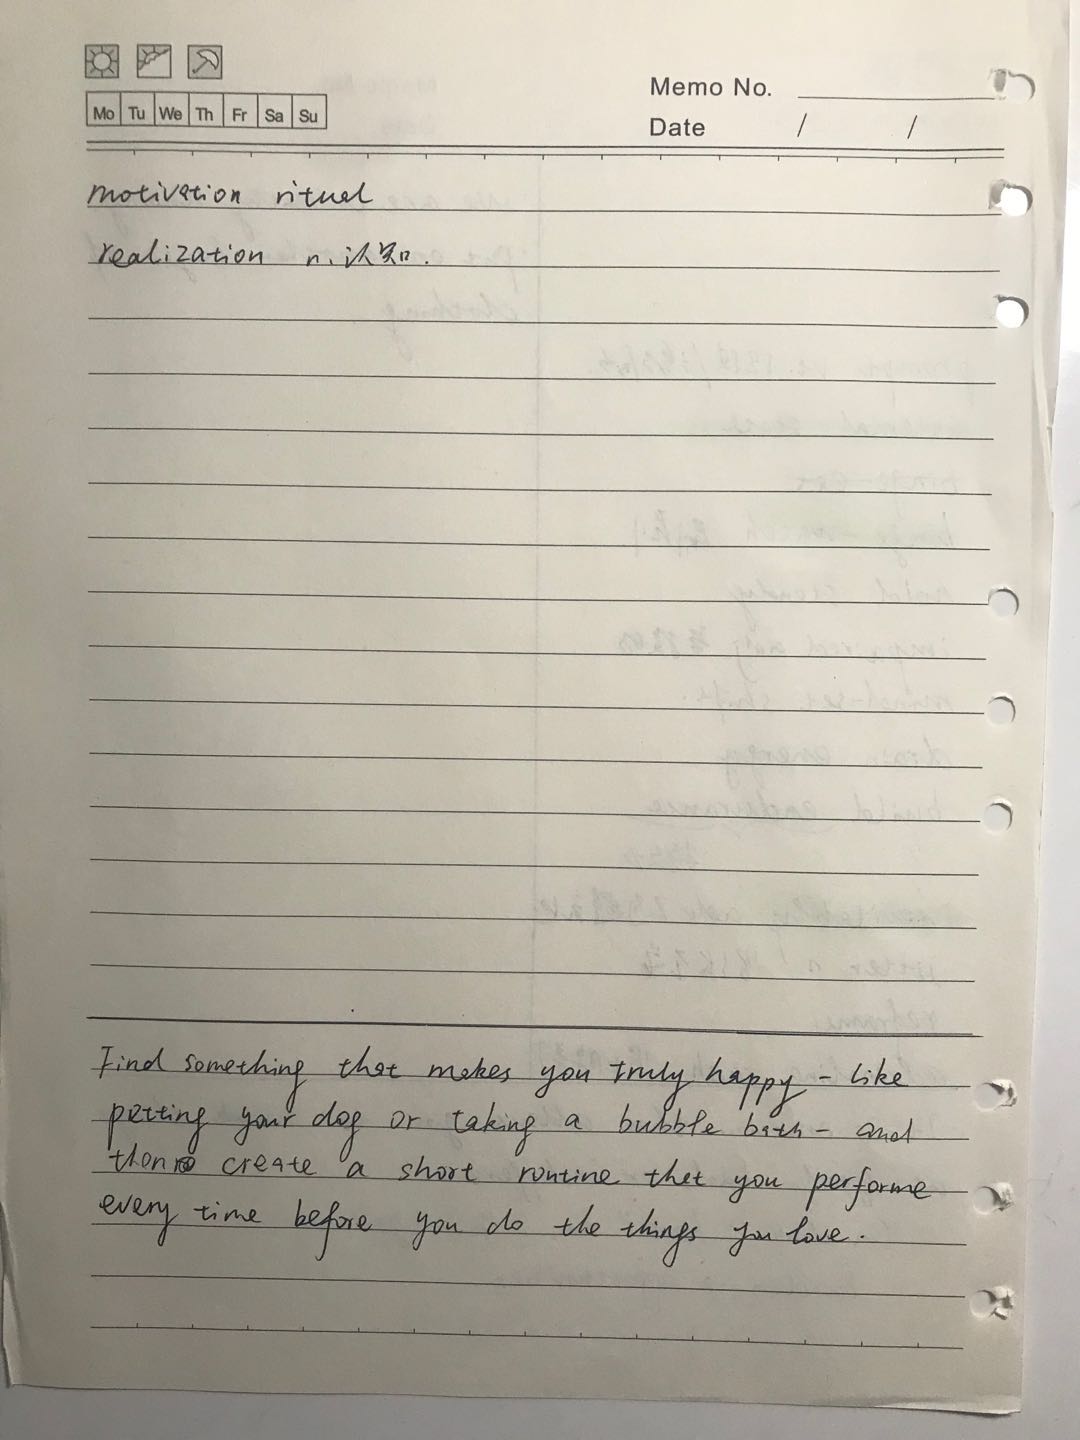 Mo Tu We Th Fr Sa Su
Memo No.
Date / /
motivation rituel
realization n. 认知.
Find something that makes you truly happy - like
petting your dog or taking a bubble bath - and
then create a short routine that you performe
every time before you do the things you love.